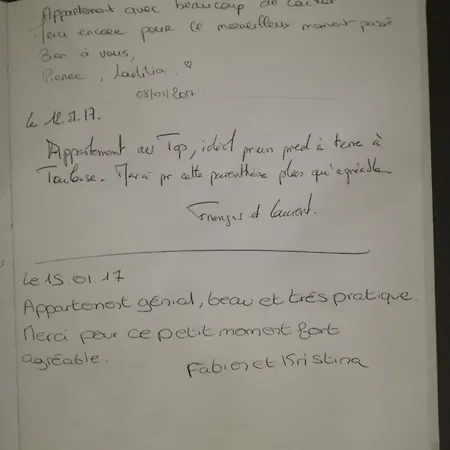 Appartement avec beaucoup de cachet
Merci encore pour ce merveilleux moment passé
Bien à vous,
Pierre, Laetitia
08/01/2017
Le 12.01.17.
Appartement au Top, idéal pr un pied à terre à
Toulouse. Merci pr cette parenthèse plus qu'agréable
François et Laurent.
Le 15.01.17
Appartement génial, beau et très pratique.
Merci pour ce petit moment fort
agréable.
Fabien et Kristina